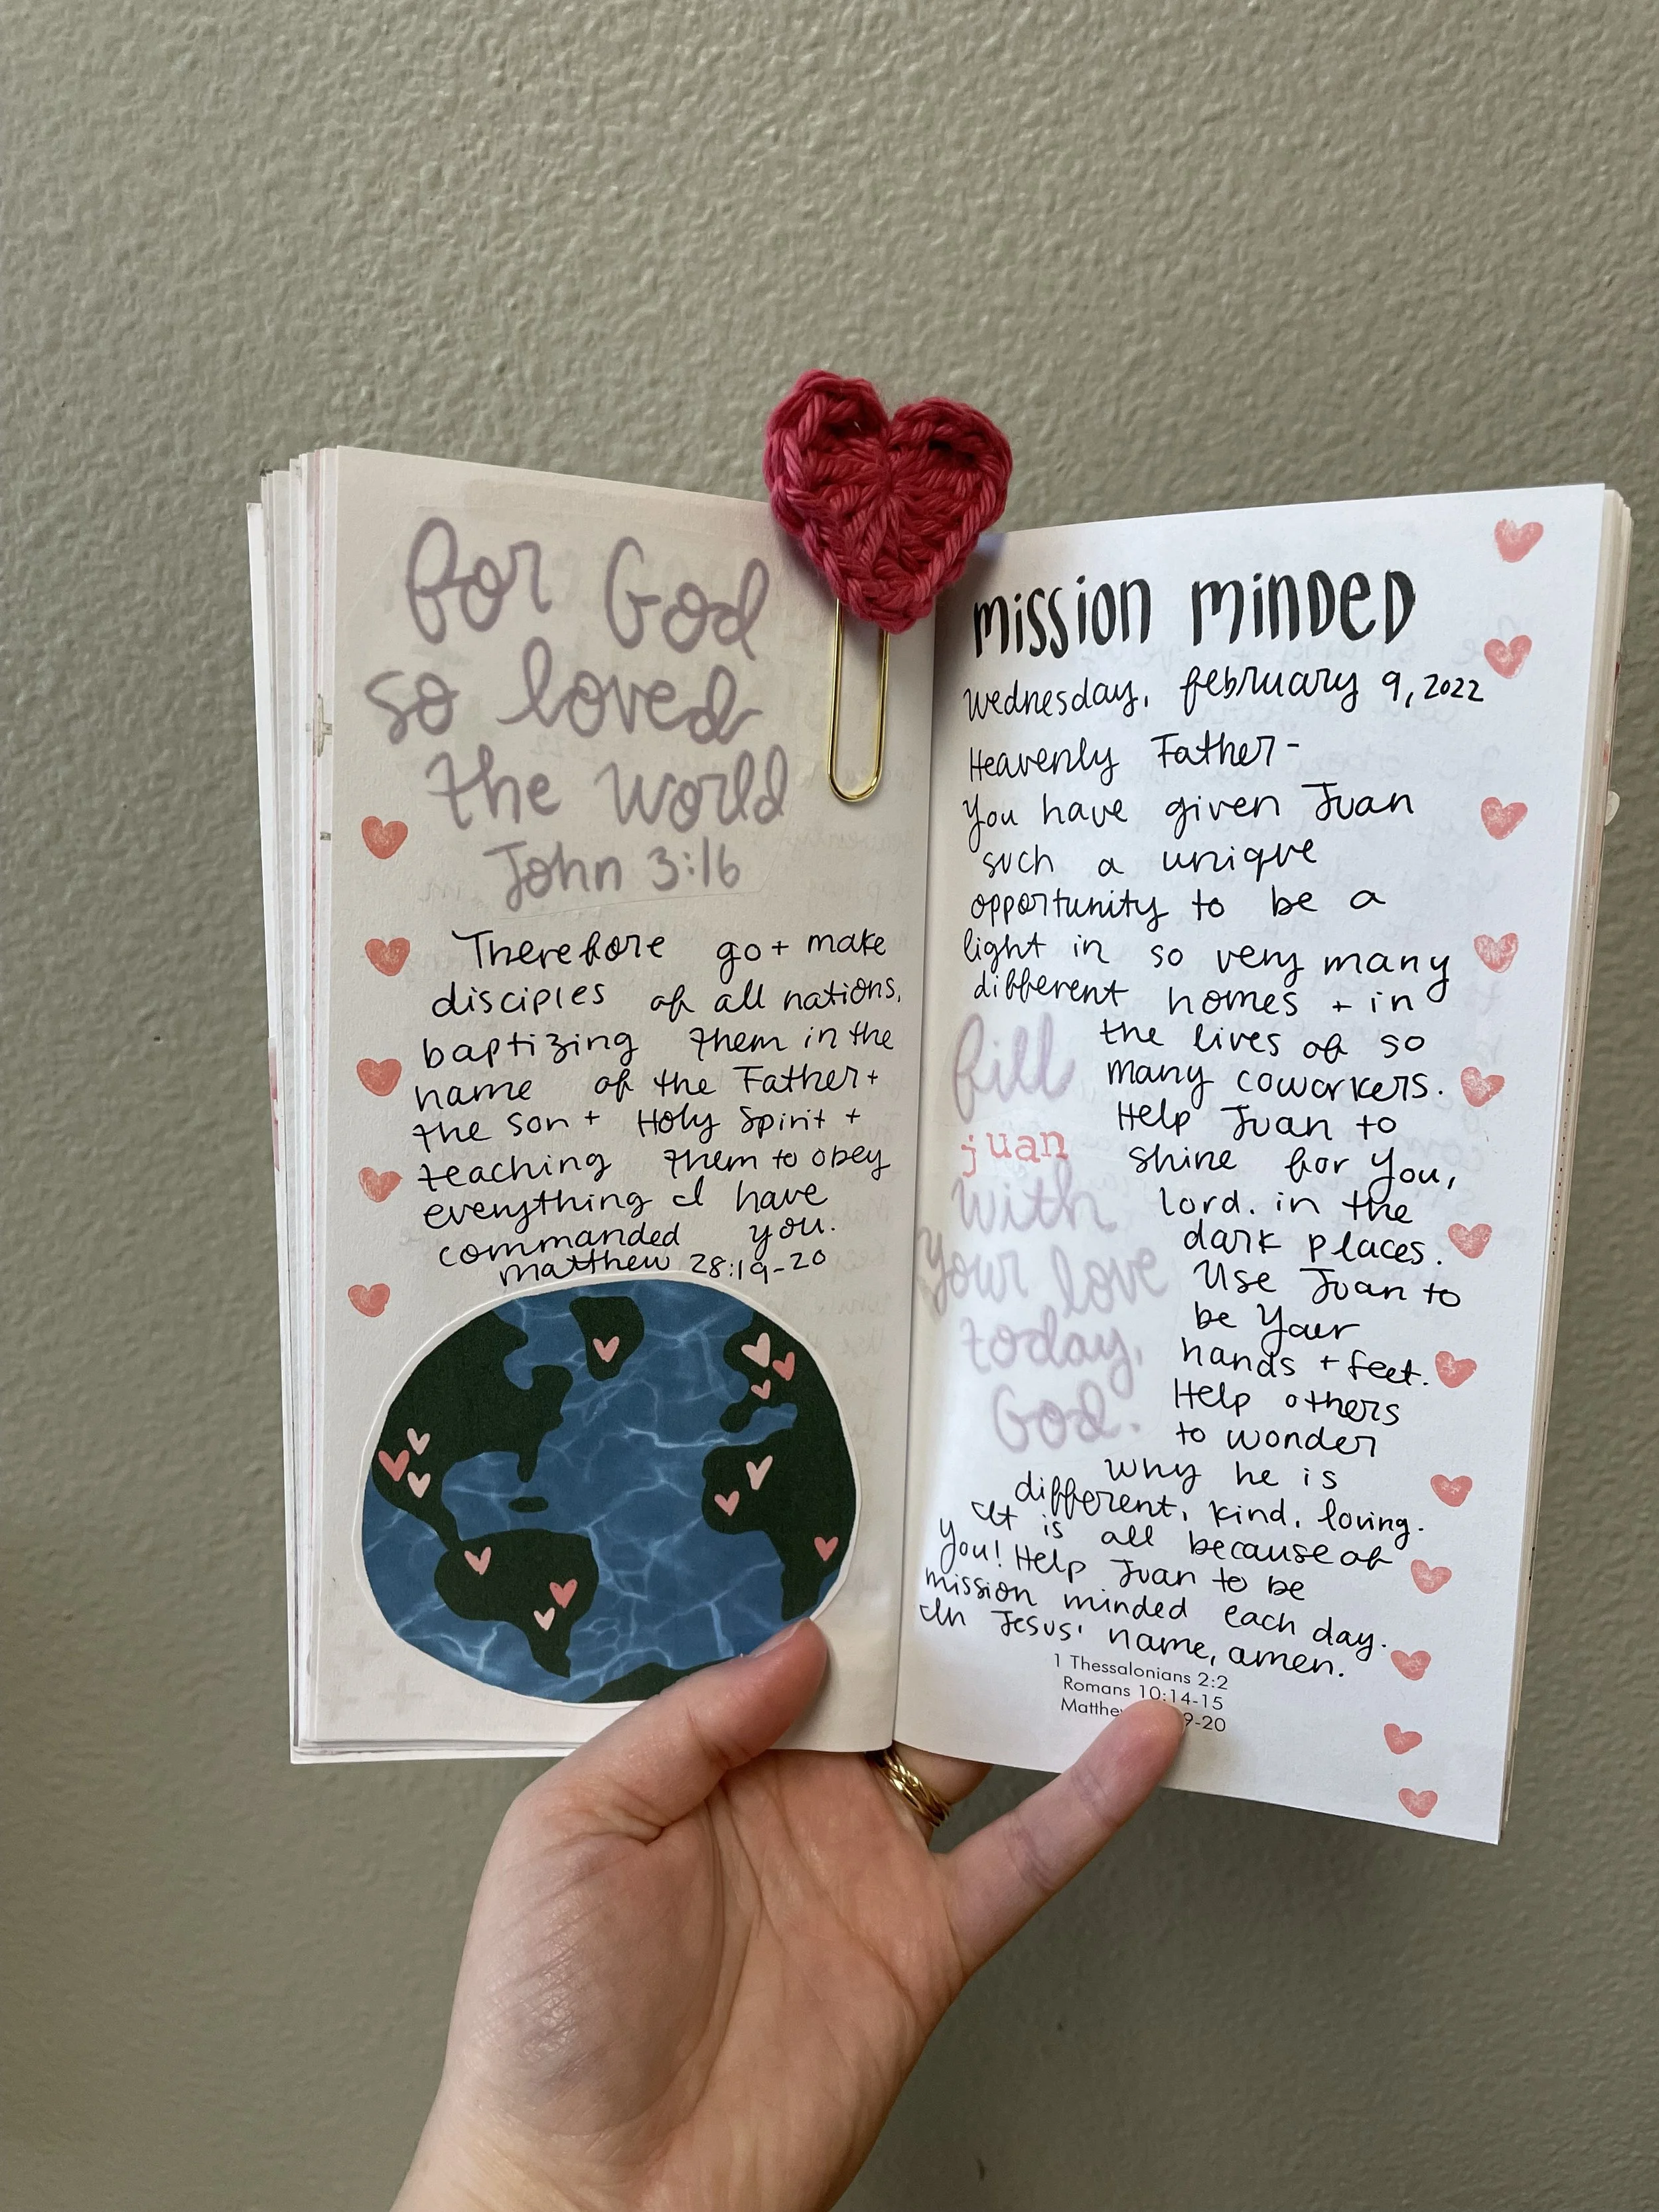 for God
so loved
the world
John 3:16
Therefore go + make
disciples of all nations,
baptizing them in the
name of the Father +
the son + Holy Spirit +
teaching them to obey
everything I have
commanded you.
matthew 28:19-20
mission minded
Wednesday, february 9, 2022
Heavenly Father -
You have given Juan
such a unique
opportunity to be a
light in so very many
different homes + in
the lives of so
many coworkers.
Help Juan to
shine for You,
lord. in the
dark places.
Use Juan to
be Your
hands + feet.
Help others
to wonder
why he is
different, kind, loving.
It is all because of
you! Help Juan to be
mission minded each day.
In Jesus' name, amen.
fill
juan
with
your love
today,
God.
1 Thessalonians 2:2
Romans 10:14-15